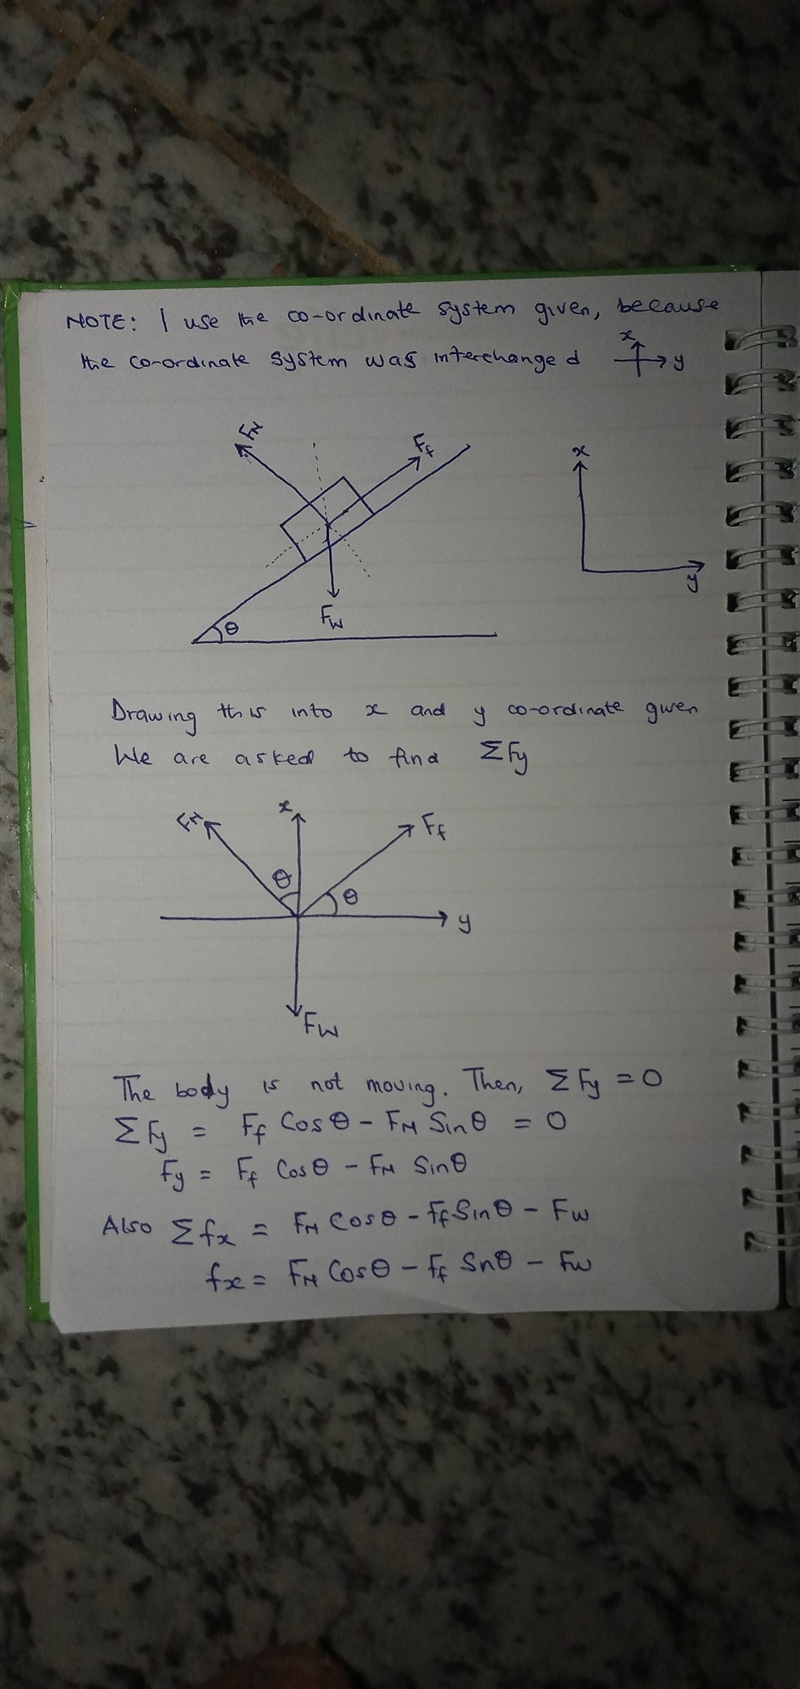 NOTE: I use the co-ordinate system given, because
the co-ordinate system was interchanged
x
y
FN
Ff
x
θ
FW
y
Drawing this into x and y co-ordinate given
We are asked to find ΣFy
FN
x
Ff
θ
θ
y
FW
The body is not moving. Then, ΣFy = 0
ΣFy = Ff Cosθ - FN Sinθ = 0
Fy = Ff Cosθ - FN Sinθ
Also Σfx = FN Cosθ - FfSinθ - FW
fx = FN Cosθ - Ff Snθ - FW